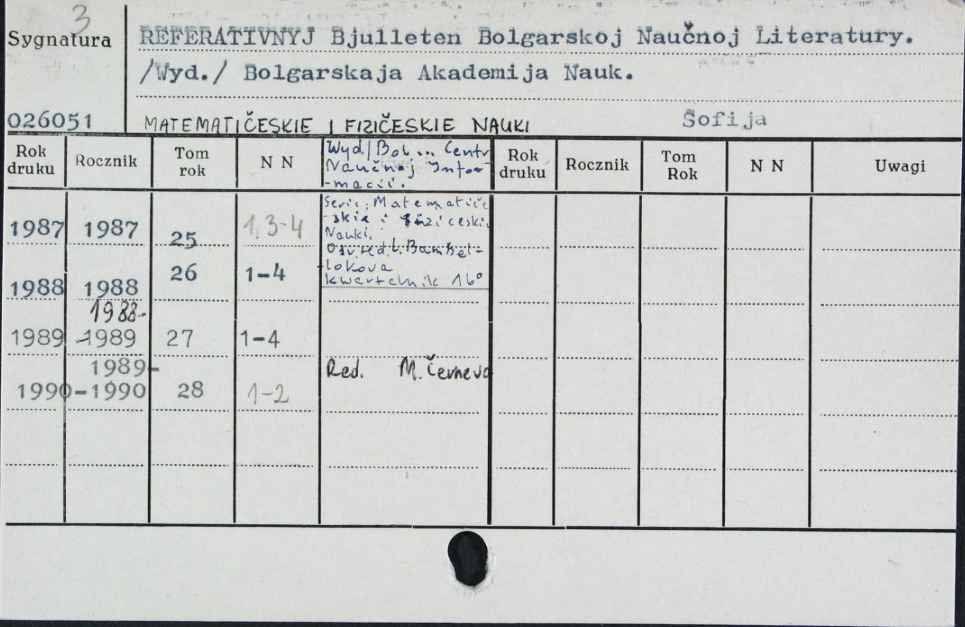 3
Sygnatura
REFERATIVNYJ Bjulleten Bolgarskoj Naučnoj Literatury.
/Wyd./ Bolgarskaja Akademija Nauk.
026051
MATEMATIČESKIE I FIZIČESKIE NAUKI
Sofija
Rok druku Rocznik Tom rok N N
Wyd/Bol... Centr
Naučnoj Infor-
-macii.
Rok druku Rocznik Tom Rok N N Uwagi
Seric: Matematiče
-skie i fiziceskie
Nauki.
1987 1987 25 1,3-4
-lokova
kwartalnik 16°
1988 1988 26 1-4
1988-
1989 -1989 27 1-4
Red. M. Černeva
1989-
1990 -1990 28 1-2